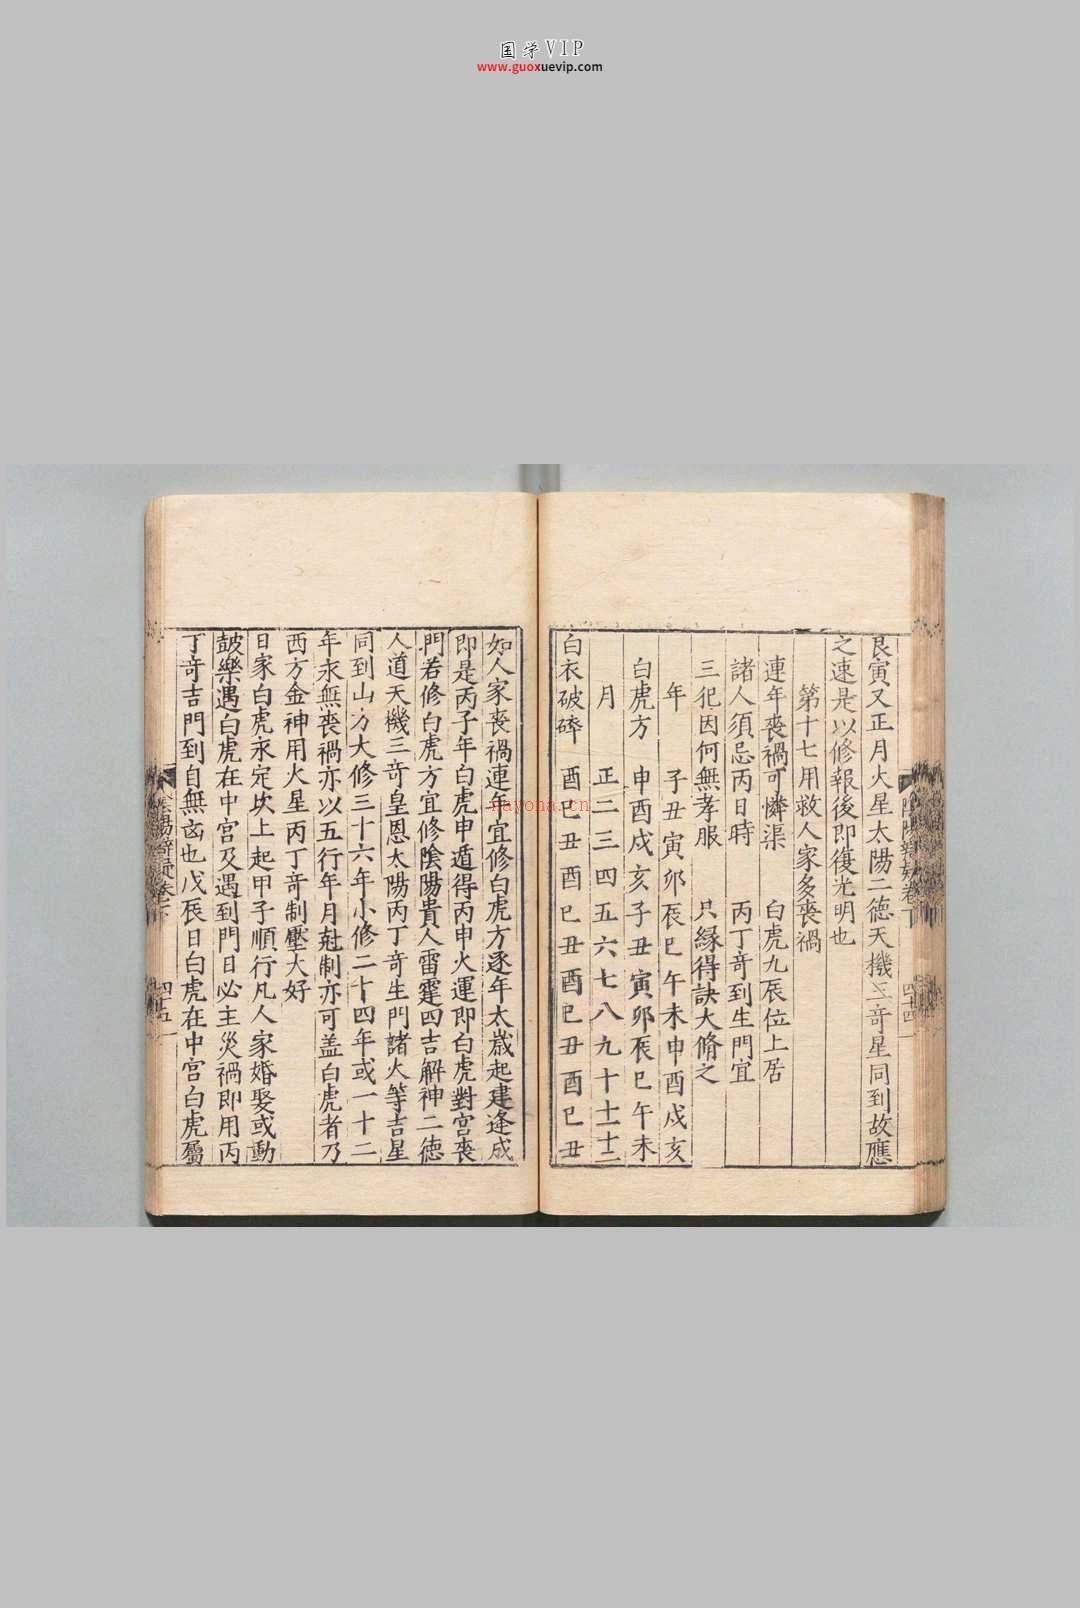 国学VIP
www.guoxuevip.com
艮寅又正月火星太陽二德天機三奇星同到故應
之速是以修報後即復光明也
第十七用救人家多喪禍
連年喪禍可憐渠 白虎九辰位上居
諸人須忌丙日時 丙丁奇到生門宜
三犯因何無孝服 只緣得訣大脩之
年 子丑寅卯辰巳午未申酉戍亥
白虎方 申酉戍亥子丑寅卯辰巳午未
月 正二三四五六七八九十十一十二
白衣破碎 酉巳丑酉巳丑酉巳丑酉巳丑
四十四
如人家喪禍連年宜修白虎方逐年太歲起建逢成
即是丙子年白虎申遁得丙申火運即白虎對宮喪
門若修白虎方宜修陰陽貴人雷霆四吉解神二德
人道天機三奇皇恩太陽丙丁奇生門諸火等吉星
同到山方大修三十六年小修二十四年或一十二
年永無喪禍亦以五行年月尅制亦可盖白虎者乃
西方金神用火星丙丁奇制壓大好
日家白虎永定坎上起甲子順行凡人家婚娶或動
鼓樂遇白虎在中宮及遇到門日必主災禍即用丙
丁奇吉門到自無凶也戊辰日白虎在中宮白虎屬
四十五
nayona.cn